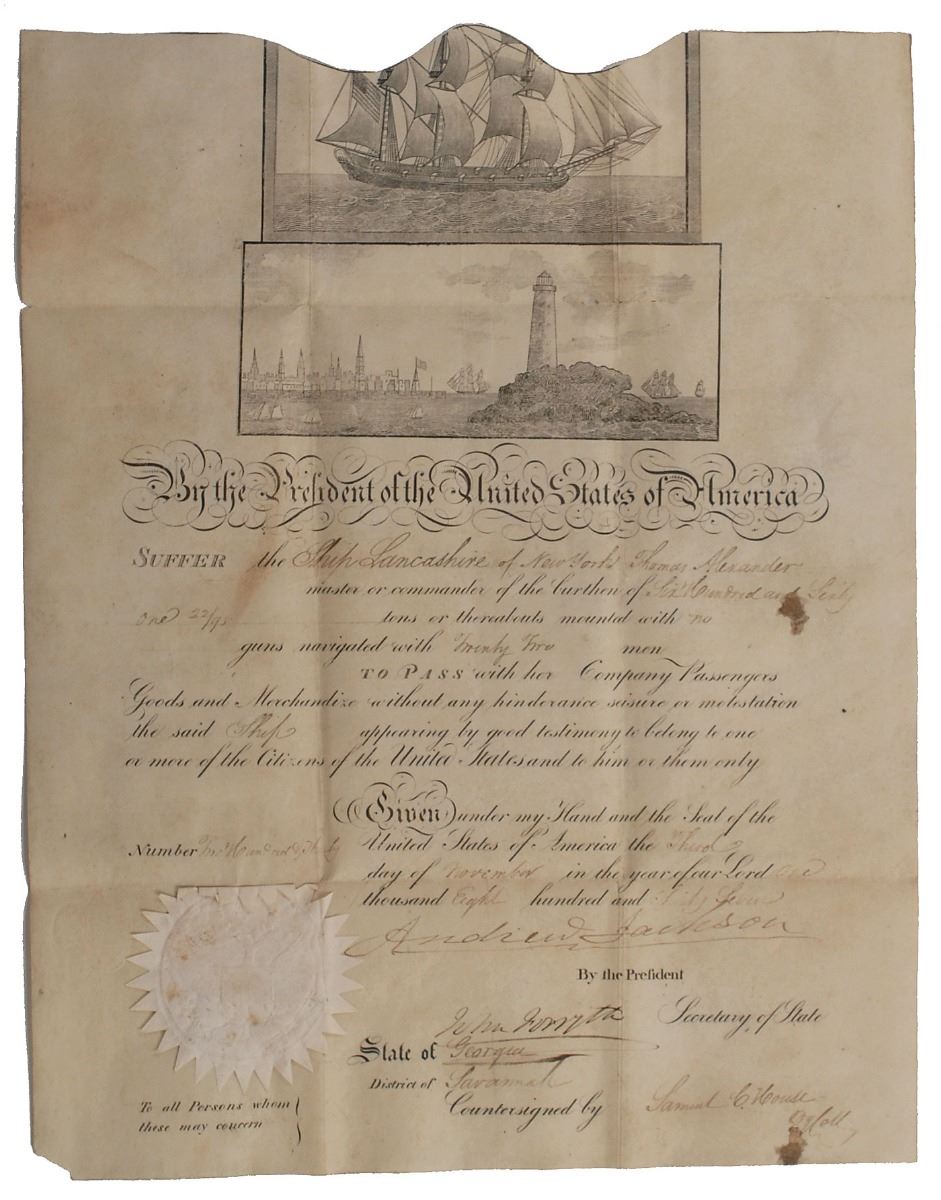 By the President of the United States of America
SUFFER the Ship Lancashire of New York Thomas Alexander
master or commander of the burthen of Six Hundred and Sixty
One 22/95 tons or thereabouts mounted with no
guns navigated with Twenty Two men
TO PASS with her Company Passengers
Goods and Merchandize without any hinderance seisure or molestation
the said Ship appearing by good testimony to belong to one
or more of the Citizens of the United States and to him or them only
Given under my Hand and the Seal of the
United States of America the Third
Number Two Hundred &
day of November in the year of our Lord one
thousand Eight hundred and
Andrew Jackson
By the President
John Forsyth Secretary of State
State of Georgia
District of Savannah
Countersigned by Samuel C.
To all Persons whom
these may concern